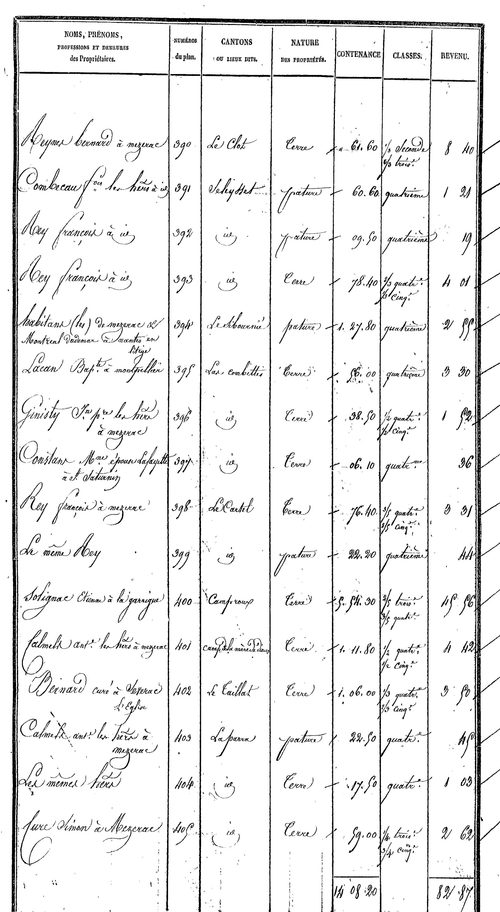 NOMS, PRÉNOMS, PROFESSIONS ET DEMEURES des Propriétaires. NUMÉROS du plan. CANTONS OU LIEUX DITS. NATURE DES PROPRIÉTÉS. CONTENANCE CLASSES. REVENU.
bernard à mezerac 390 Le Clot Terre 61.60 1/2 Seconde 1/2 trois.e 8 40
les hérs à id 391 pature 60.60 quatrième 1 21
Rey françois à id 392 id pature 09.50 quatrième 19
Rey françois à id 393 id Terre 78.40 quatr.e cinq.e 4 01
habitans (les) de mezerac et 394 pature 1.27.80 quatrième 2 55
Lacan Bap.te à montpellier 395 Las combettes Terre 56.00 quatrième 3 30
Ginisty les hérs 396 id Terre 38.50 1/2 quatr.e 1/2 cinq.e 1 52
à mezerac
Constans Mme épouse Lafayette 397 id Terre 06.10 quatr.me 36
à St Saturnin
Rey françois à mezerac 398 Le Cartel Terre 76.40 quatr.e cinq.e 3 31
Le même Rey 399 id pature 22.20 quatrième 44
Solignac Etienne à la garrigue 400 Camproux Terre 5.54.30 trois.e quatr.e 45 56
Calmels ant.e les hérs à mezerac 401 Terre 1.11.80 1/2 quatr.e 1/2 cinq.e 4 42
Bernard curé à Severac 402 Le Taillat Terre 1.06.00 quatr.e cinq.e 3 50
L'Eglise
Calmels ant.e les hérs à 403 Laparra pature 22.50 quatr.e 45
mezerac
Les mêmes hérs 404 id Terre 17.50 quatr.e 1 03
Cure Simon à Mezerac 405 id Terre 59.00 1/4 trois.e 3/4 cinq.e 2 62
14 08.20 82.87